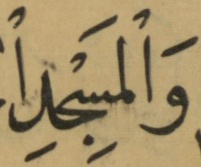 وَاْلمَسْجِدِاْ